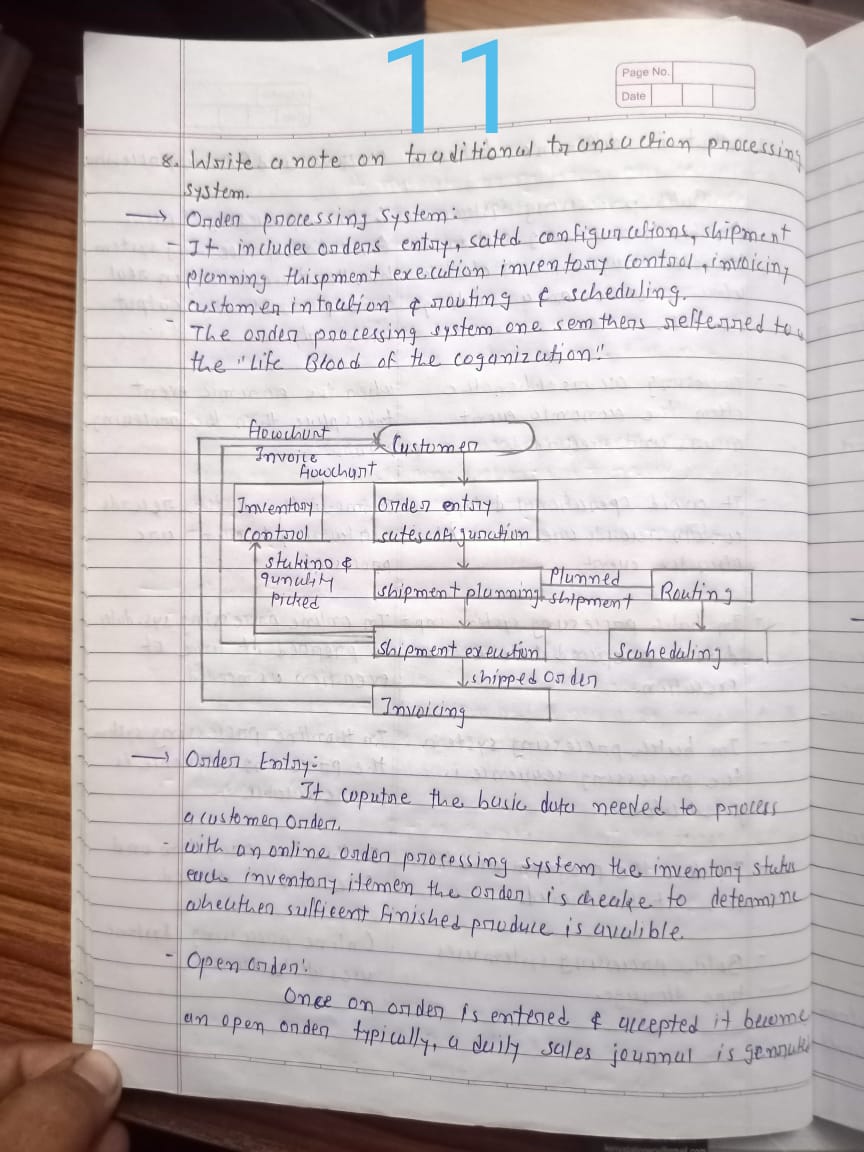 11
Page No.
Date
8. Write a note on traditional transaction processing
system.
→ Order processing system:
- It includes orders entry, sated configurations, shipment
planning thispment execution inventory control, invoicing
customer intraction & routing & scheduling.
- The order processing system one semthers reffenred to
the "Life Blood of the coganization"
flowchart
Invoice
flowchart
Customer
Inventory
control
Order entry
sutescofiguration
stuking &
qunality
picked
shipment planning
Planned
shipment
Routing
shipment execution
Scuheduling
shipped order
Invoicing
→ Order Entry:
It coputure the basic data needed to process
a customer order.
- with an online order processing system the inventory status
euche inventory itemen the order is cheake to determine
wheuther sufficent finished produce is avalible.
- Open order:
Once on order is entered & accepted it become
an open order typically, a daily sales journal is